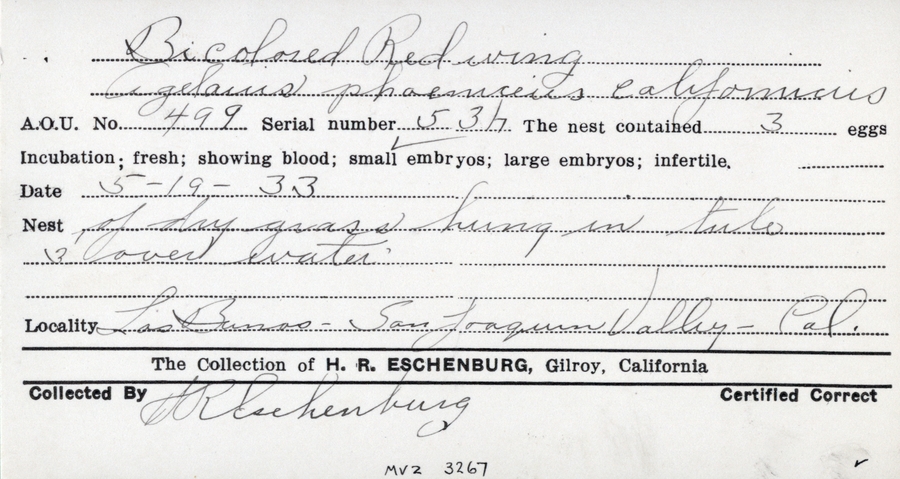 Bicolored Redwing
Agelaius phoeniceus californicus
A.O.U. No. 499 Serial number 53/7 The nest contained 3 eggs
Incubation; fresh; showing blood; small embryos; large embryos; infertile.
Date 5-19-33
Nest of dry grass hung in tule
3' over water
Locality Los Banos - San Joaquin Valley - Cal.
The Collection of H. R. ESCHENBURG, Gilroy, California
Collected By HR Eschenburg Certified Correct
MVZ 3267